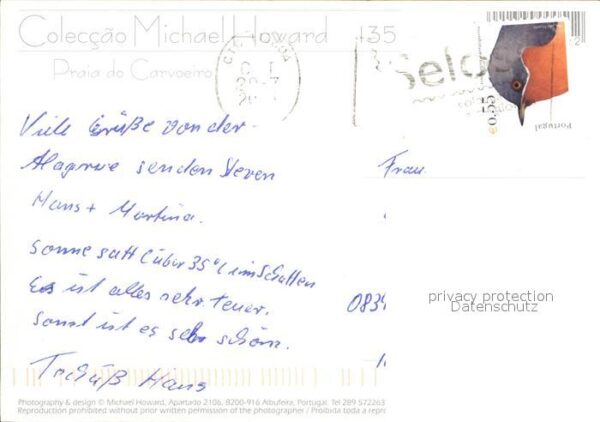 Colecção Michael Howard 35
Praia do Carvoeiro
selo
€0.55
Portugal
Viele Grüße von der
Alagarve senden Steven
Hans + Martina.
Sonne satt (über 35° im Schatten
Es ist alles sehr teuer.
Sonst ist es sehr schön.
Tschüß Hans
Frau
0834
privacy protection
Datenschutz
Photography & design © Michael Howard, Apartado 2106, 8200-916 Albufeira, Portugal. Tel 289 572263
Reproduction prohibited without prior written permission of the photographer / Proibida toda a repr